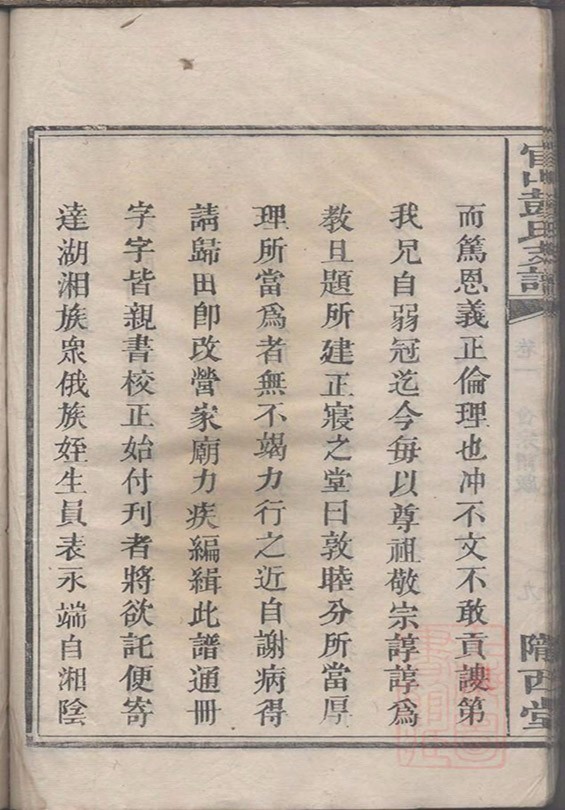 官山彭氏支譜
隴西堂
而篤恩義正倫理也冲不文不敢貢諛第
我兄自弱冠迄今每以尊祖敬宗諄諄爲
教且題所建正寢之堂曰敦睦分所當厚
理所當爲者無不竭力行之近自謝病得
請歸田卽改營家廟力疾編緝此譜通冊
字字皆親書校正始付刋者將欲託便寄
達湖湘族衆俄族姪生員表永端自湘陰